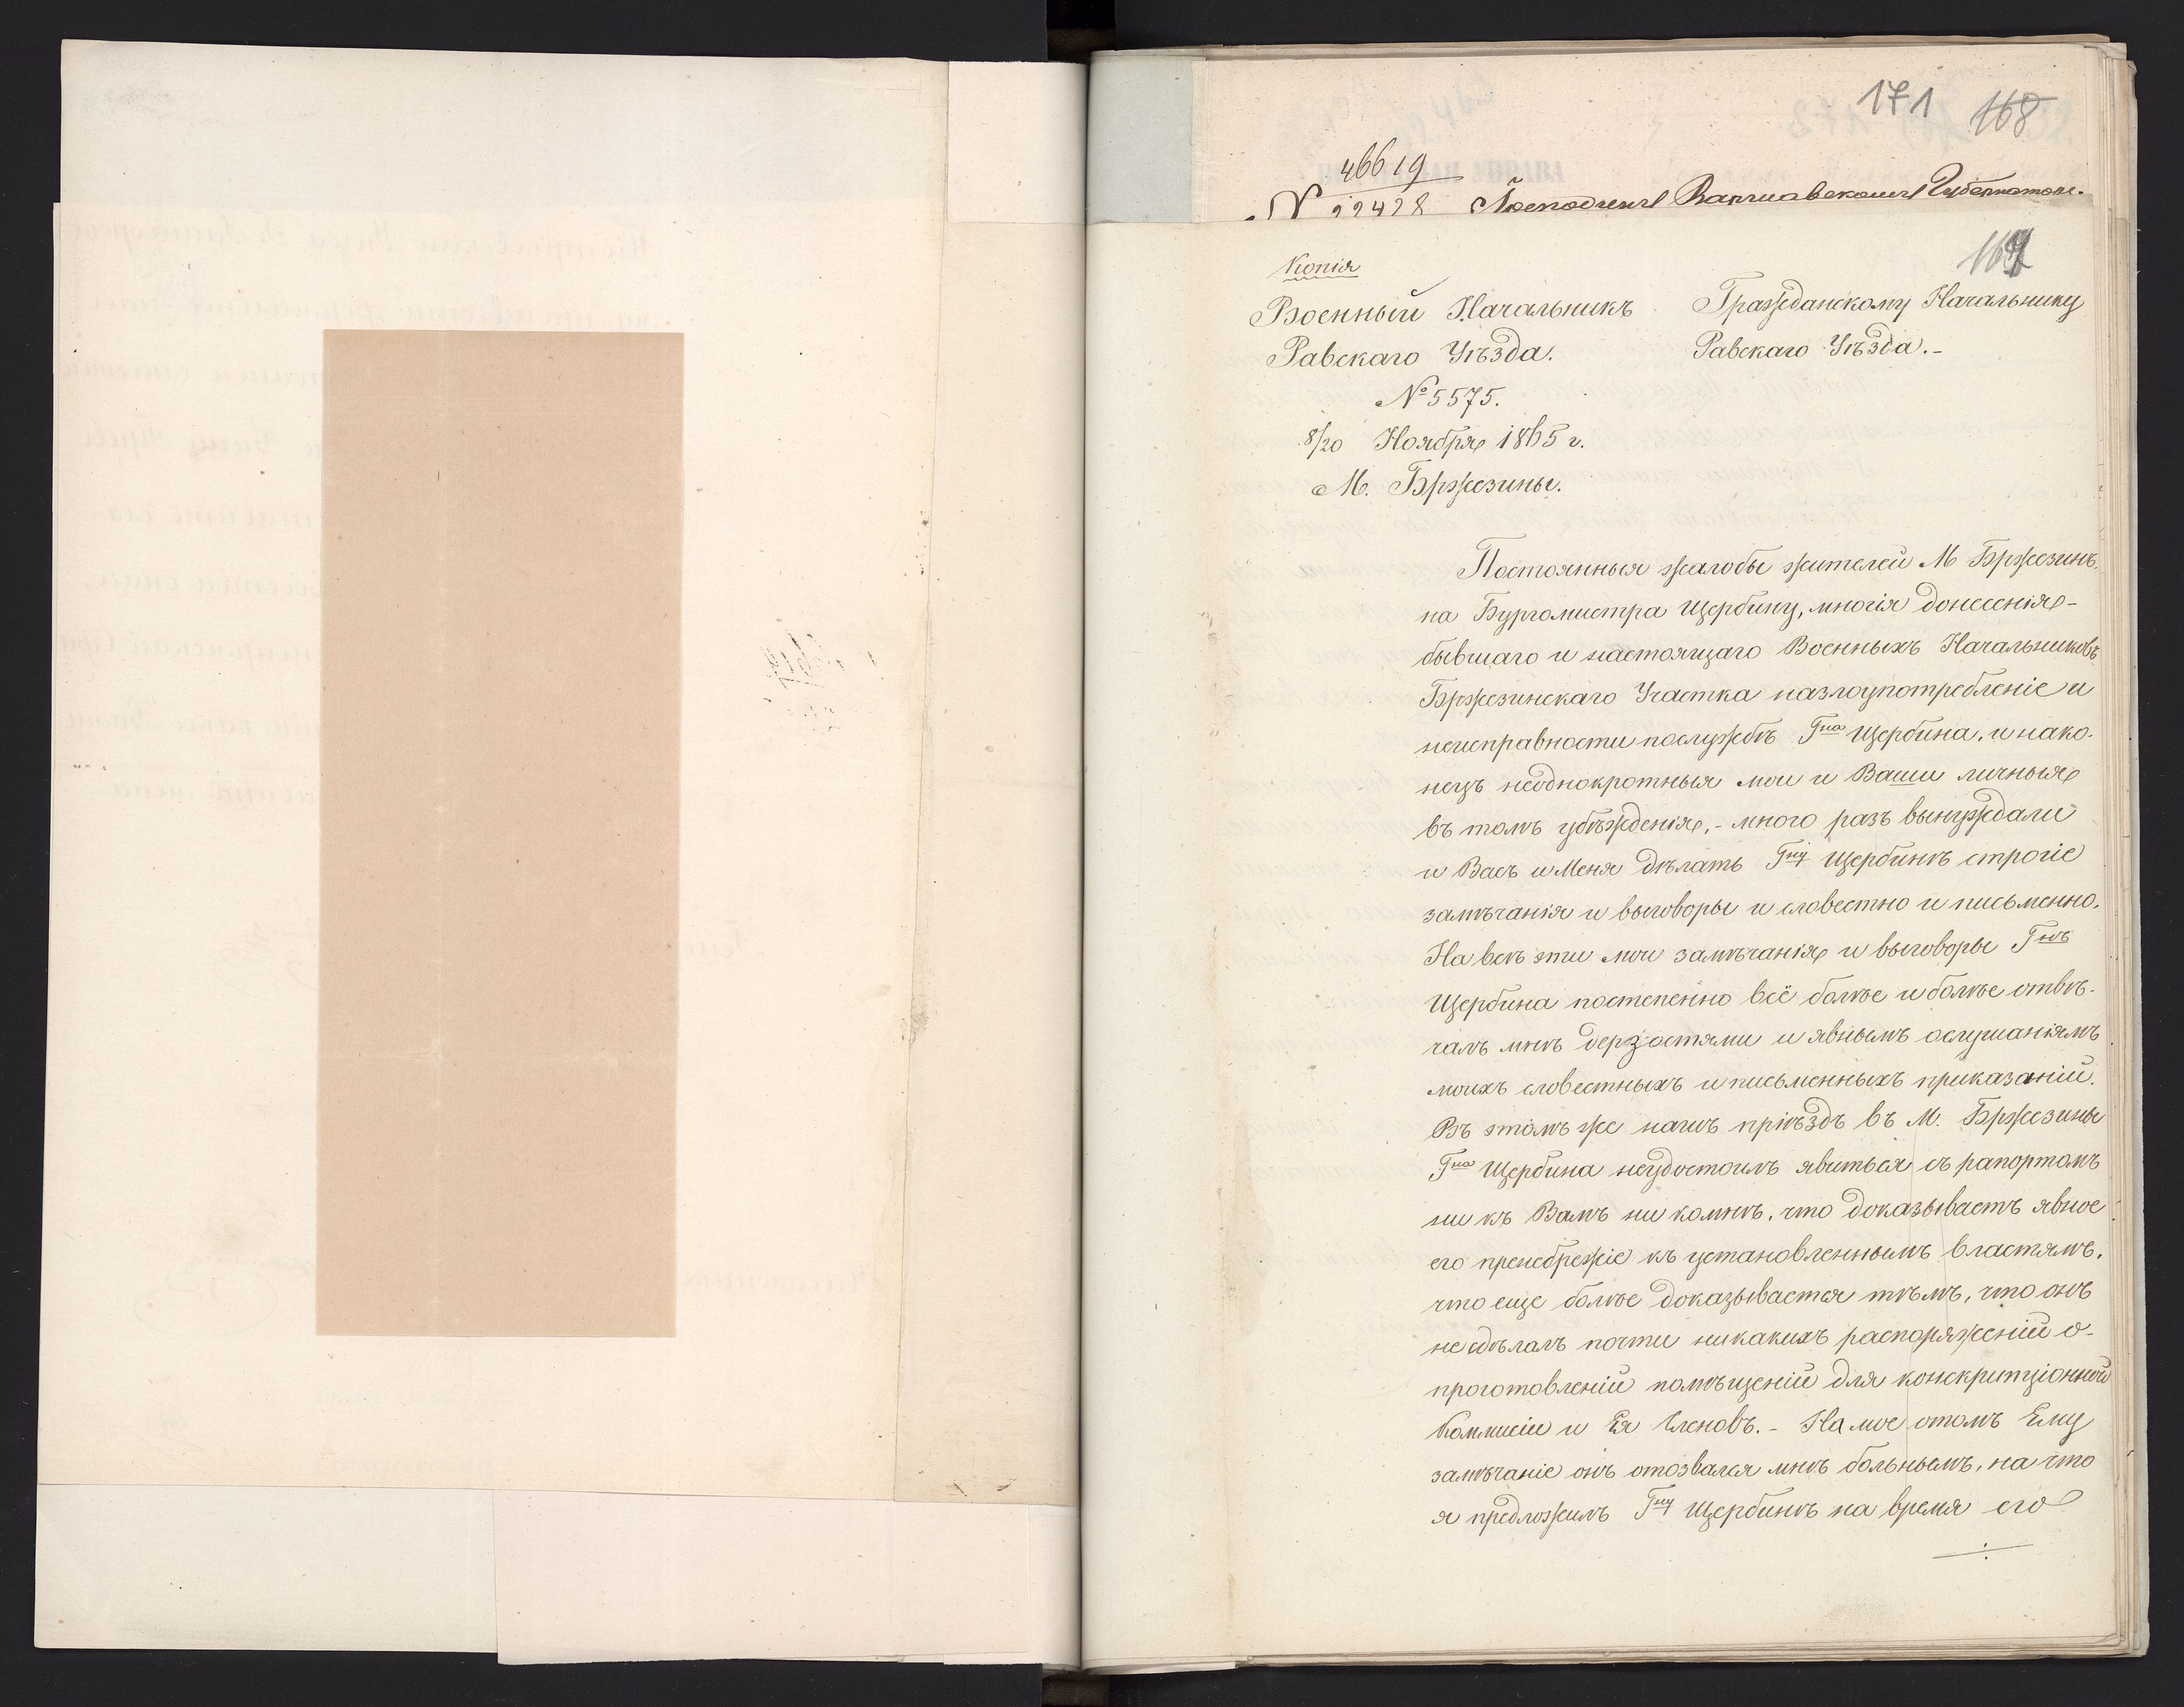 171 168
46619
N 22428 Господину Варшавскому Губернатору.
Копія
Военный Начальникъ
Равскаго Уѣзда.
№ 5575.
8/20 Ноября 1865 г.
М. Бржезины.
Гражданскому Начальнику
Равскаго Уѣзда.-
Постоянныя жалобы жителей М Бржезинъ.
на Бургомистра Щербину, многія донесенія-
бывшаго и настоящаго Военныхъ Начальниковъ
Бржезинскаго Участка назлоупотребленіе и
неисправности послужбѣ Гна Щербина, и нако-
нецъ неоднокротныя мои и Ваши личныя
въ томъ убѣжденія,- много разъ вынуждали
и Васъ и Меня дѣлать Гну Щербинѣ строгіе
замѣчанія и выговоры и словестно и письменно.
На всѣ эти мои замѣчанія и выговоры Гнъ
Щербина постепенно всё болѣе и болѣе отвѣ-
чалъ мнѣ дерзостями и явнымъ ослушаніямъ
моихъ словестныхъ и письменныхъ приказаній.
Въ этомъ же нашъ пріѣздъ въ М. Бржезины
Гна Щербина неудостоилъ явиться съ рапортомъ
ни къ Вамъ ни комнѣ, что доказываетъ явное
его пренебрежіе къ установленнымъ властямъ,
что еще болѣе доказывается тѣмъ, что онъ
не сдѣлалъ почти никакихъ распоряженій о-
проготовленій помѣщеній для конскрипціонной
Коммисіи и Ея Членовъ.- На мое отомъ Ему
замѣчаніе онъ отозвался мнѣ больнымъ, на что
я предложилъ Гну Щербинѣ на время его